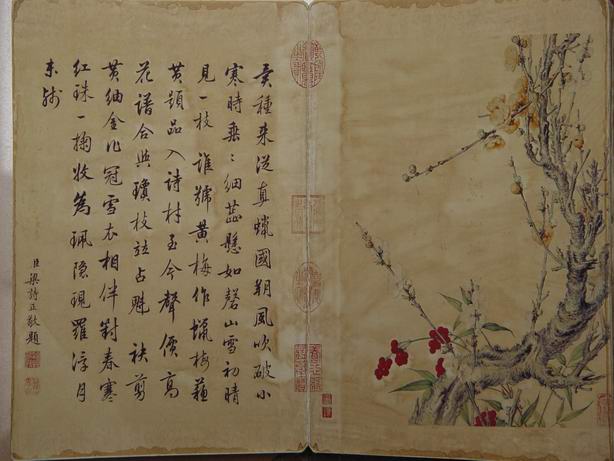 異種來從真蠟國朔風吹破小
寒時垂〻細蕊懸如磬山雪初晴
見一枝誰號黃梅作蠟梅蘓
黃題品入詩材至今聲價高
花譜合與瓊枝竝占魁袂剪
黃紬金作冠雪衣相伴對春寒
紅珠一掬收為珮隱現羅浮月
未殘
臣梁詩正敬題